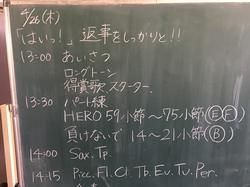 4/26(木)
「はいっ!」返事をしっかりと!!
13:00 あいさつ
ロングトーン
得賞歌 スターター
13:30 パート練
HERO 59小節〜75小節(ⒺⒻ)
負けないで 14〜21小節(Ⓑ)
14:00 Sax. Tp.
14:15 Picc. Fl. Cl. Tb. Eu. Tu. Per.